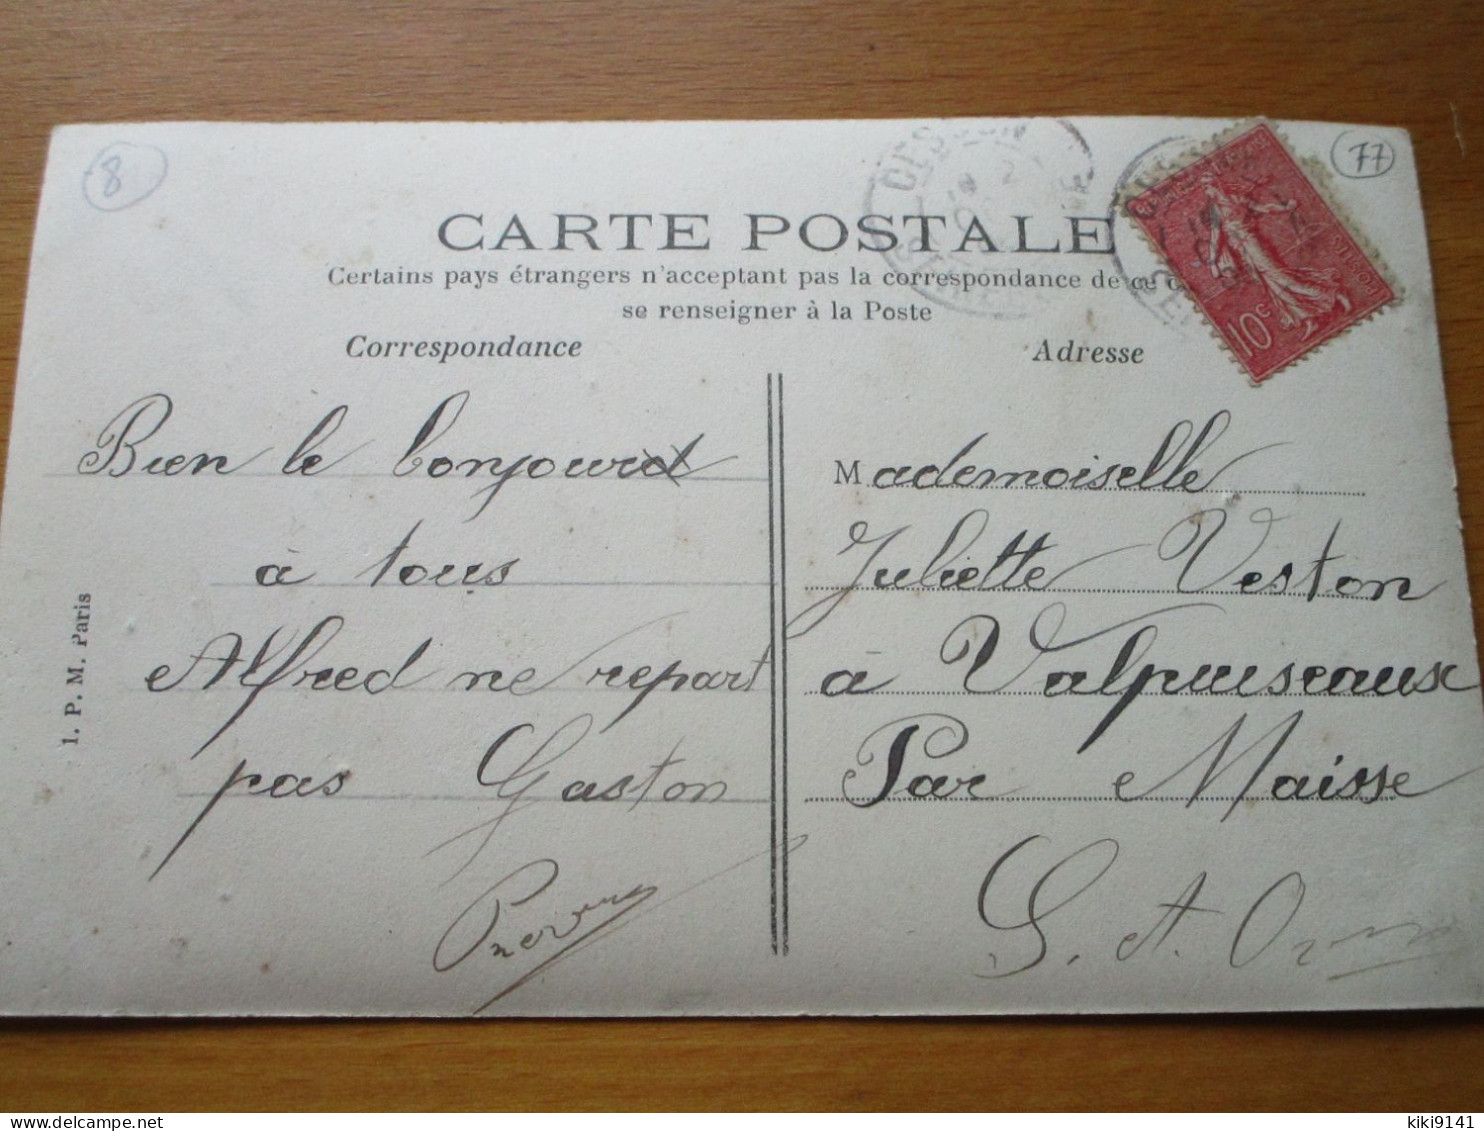 8
77
CARTE POSTALE
Certains pays étrangers n'acceptant pas la correspondance de ce c
se renseigner à la Poste
Correspondance
Bien le bonjour
à tous
Alfred ne repart
pas Gaston
1. P. M. Paris
Adresse
Mademoiselle
Juliette Veston
à Valpuiseaux
Par Maisse
S. et O
10c
POSTES
CESSON
SEINE
delcampe.net
kiki9141